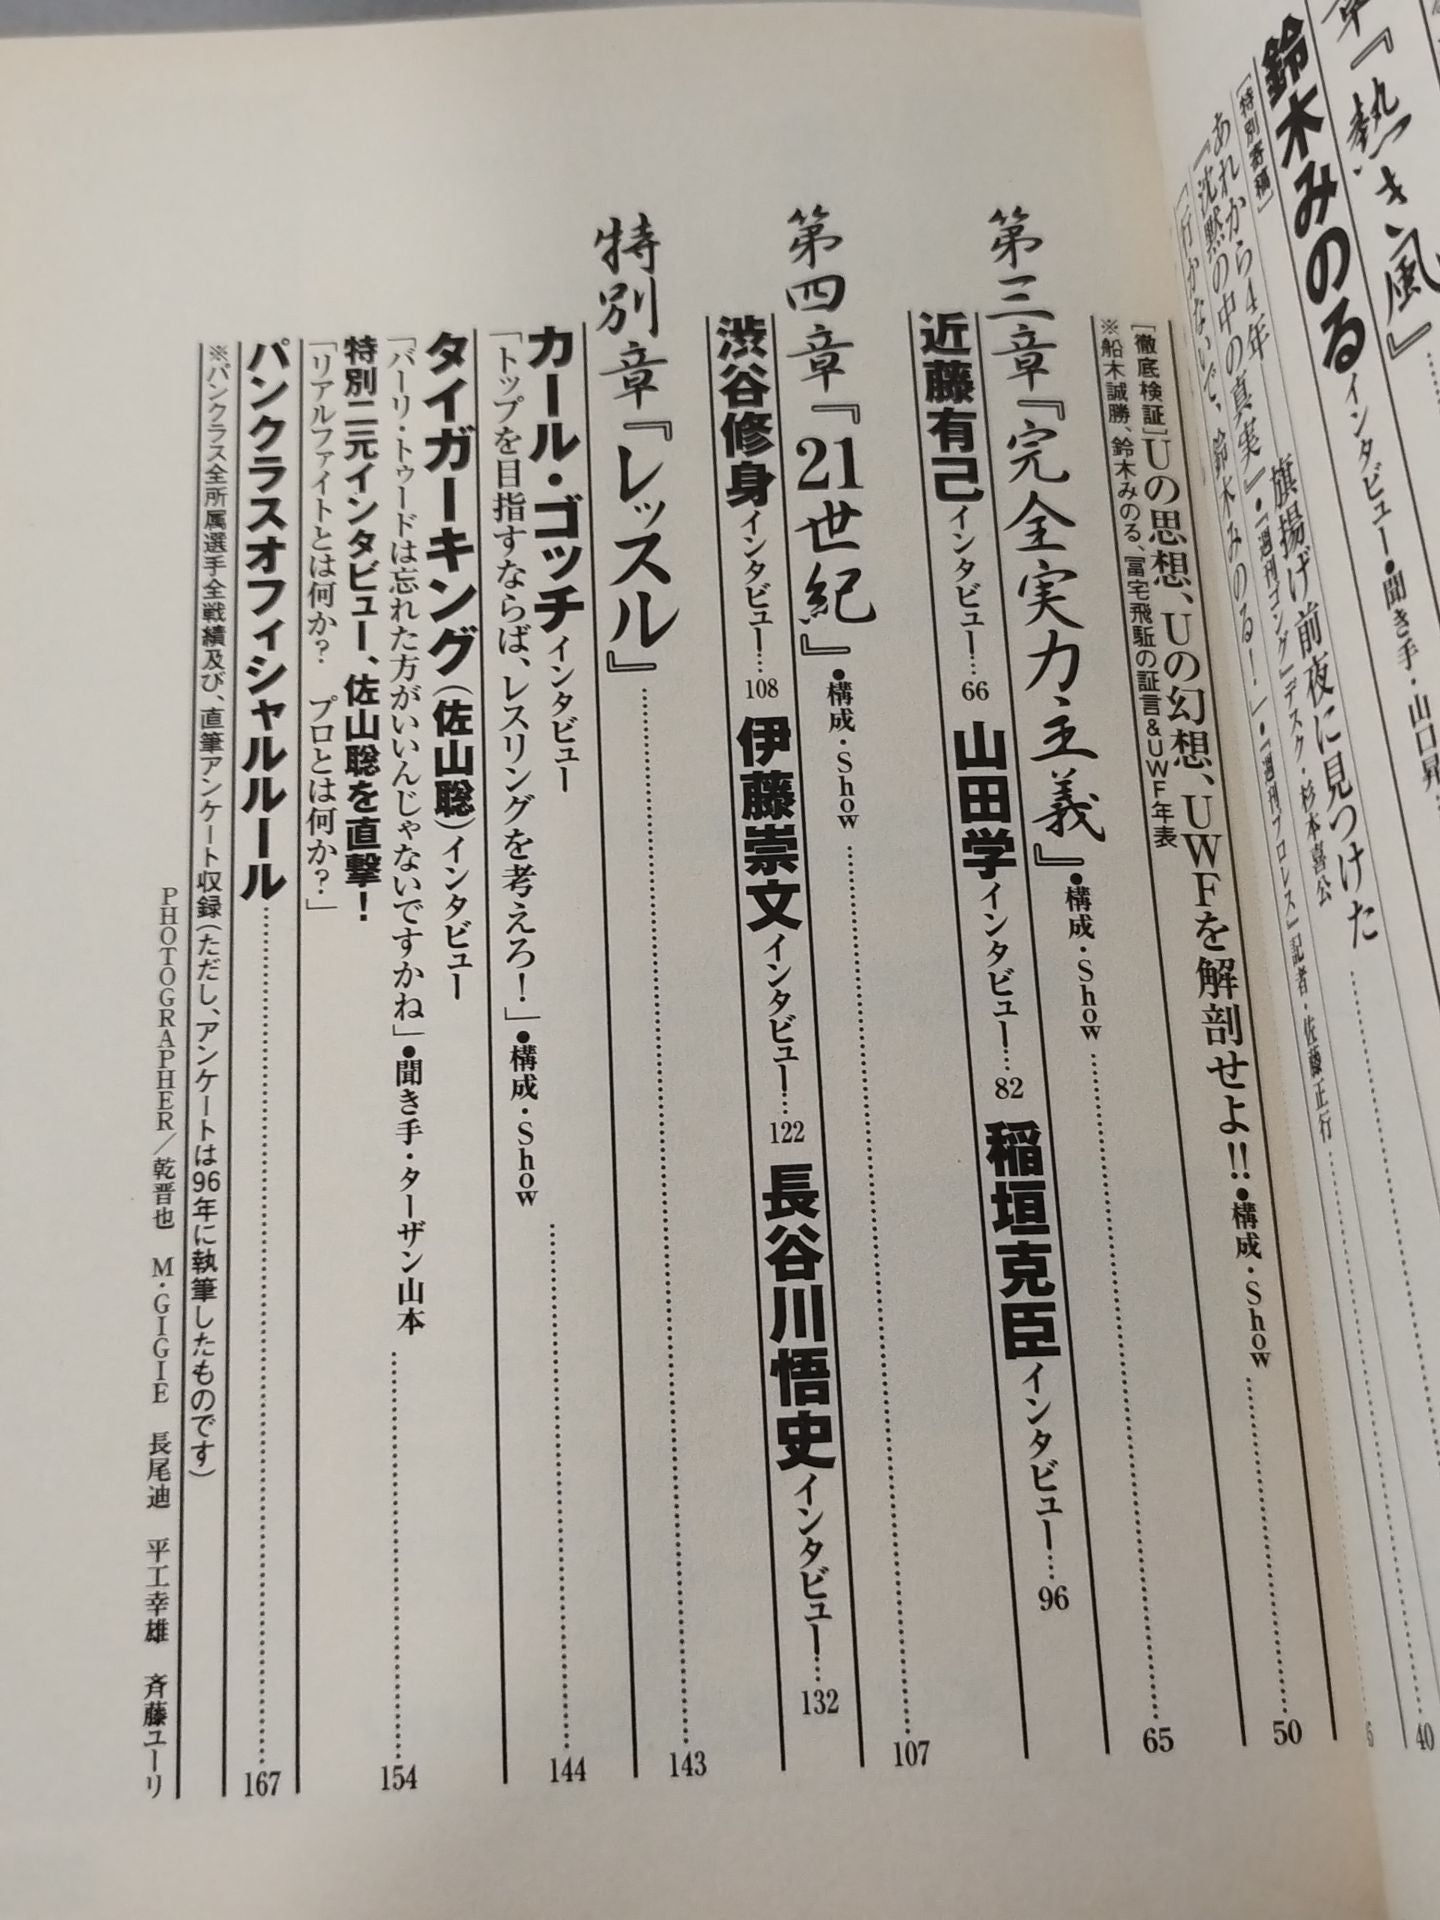 章『熱き風』
鈴木みのる インタビュー●聞き手・山口昇
旗揚げ前夜に見つけた
[特別寄稿]
あれから4年
『沈黙の中の真実』●『週刊ゴング』デスク・杉本喜公
「行かないで、鈴木みのる!」●『週刊プロレス』記者・佐藤正行
40
[徹底検証]Uの思想、Uの幻想、UWFを解剖せよ!!●構成・Show 50
※船木誠勝、鈴木みのる、冨宅飛駈の証言&UWF年表
第三章『完全実力主義』●構成・Show 65
近藤有己 インタビュー…66 山田学 インタビュー…82 稲垣克臣 インタビュー…96
第四章『21世紀』●構成・Show 107
渋谷修身 インタビュー…108 伊藤崇文 インタビュー…122 長谷川悟史 インタビュー…132
特別章『レッスル』 143
カール・ゴッチ インタビュー
「トップを目指すならば、レスリングを考えろ!」●構成・Show 144
タイガーキング(佐山聡)インタビュー
「バーリ・トゥードは忘れた方がいいんじゃないですかね」●聞き手・ターザン山本 154
特別二元インタビュー、佐山聡を直撃!
「リアルファイトとは何か? プロとは何か?」
パンクラスオフィシャルルール 167
※パンクラス全所属選手全戦績及び、直筆アンケート収録(ただし、アンケートは96年に執筆したものです)
PHOTOGRAPHER/乾晋也 M・GIGIE 長尾迪 平工幸雄 斉藤ユーリ